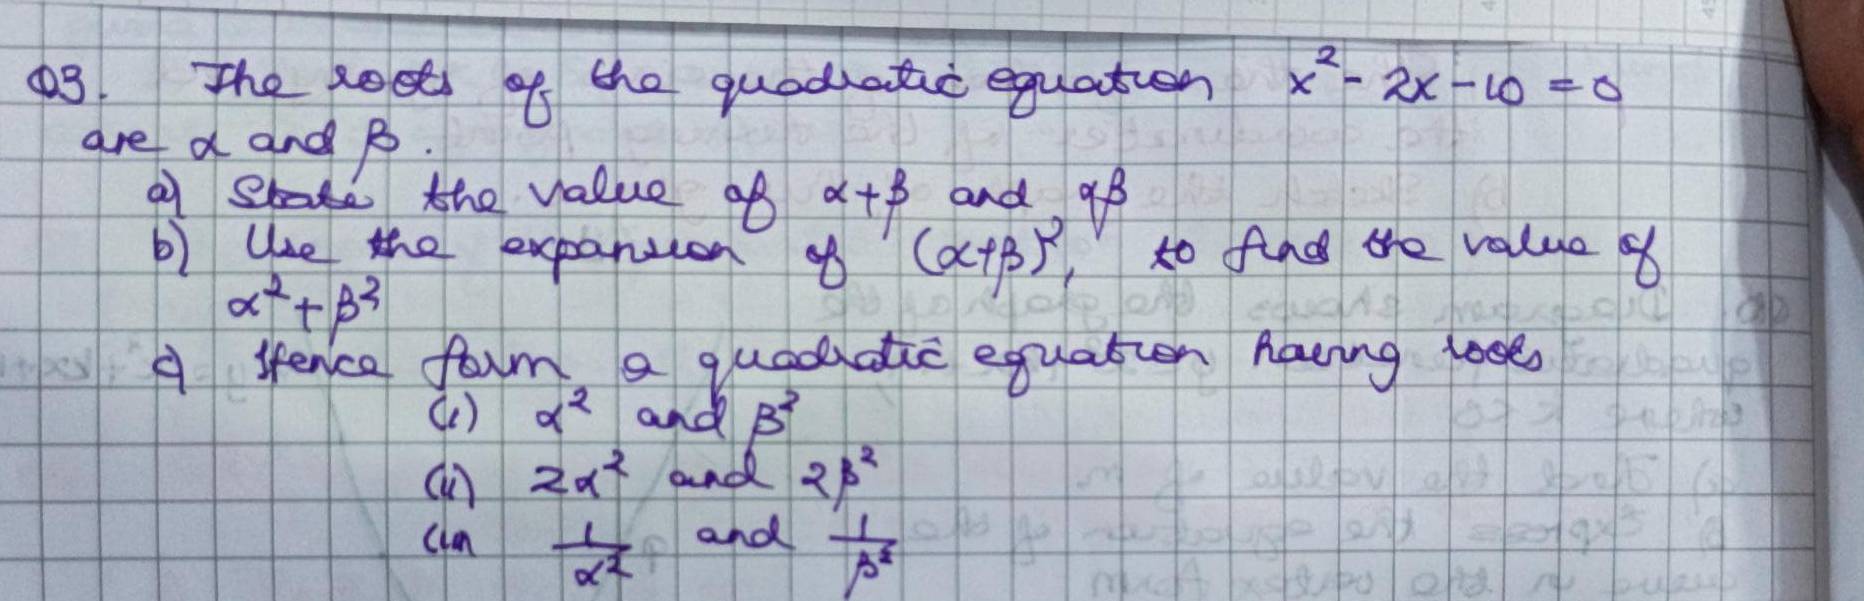 Q3. The roots of the quadratic equation x² - 2x - 10 = 0
are α and β.
a) State the value of α+β and αβ
b) Use the expansion of (α+β)², to find the value of
α² + β²
c) Hence form a quadratic equation having roots
(i) α² and β²
(ii) 2α² and 2β²
(iii) 1/α² and 1/β²